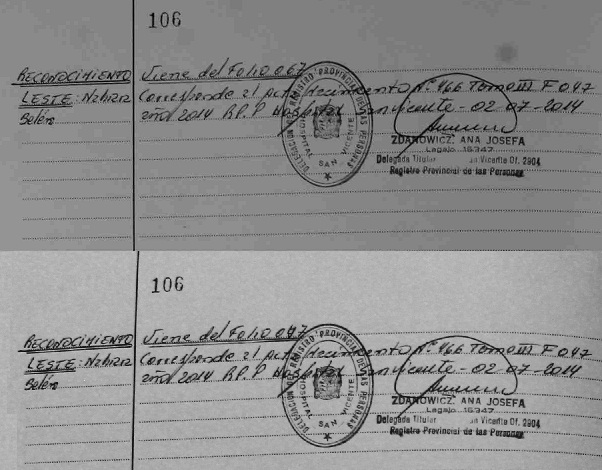 106
RECONOCIMIENTO Viene del Folio 067
LESTE: Corresponde al Acta Nacimiento Nº 466 Tomo III F 047
Belén año 2014 RP.P Hospital San Vicente - 02-07-2014
DELEGACION DE REGISTRO PROVINCIAL DE LAS PERSONAS
HOSPITAL SAN VICENTE
ZDANOWICZ, ANA JOSEFA
Legajo 16347
Delegada Titular San Vicente Of. 2904
Registro Provincial de las Personas
106
RECONOCIMIENTO Viene del Folio 047
LESTE: Corresponde al Acta Nacimiento Nº 466 Tomo III F 047
Belén año 2014 RP.P Hospital San Vicente - 02-07-2014
DELEGACION DE REGISTRO PROVINCIAL DE LAS PERSONAS
HOSPITAL SAN VICENTE
ZDANOWICZ, ANA JOSEFA
Legajo 16347
Delegada Titular San Vicente Of. 2904
Registro Provincial de las Personas